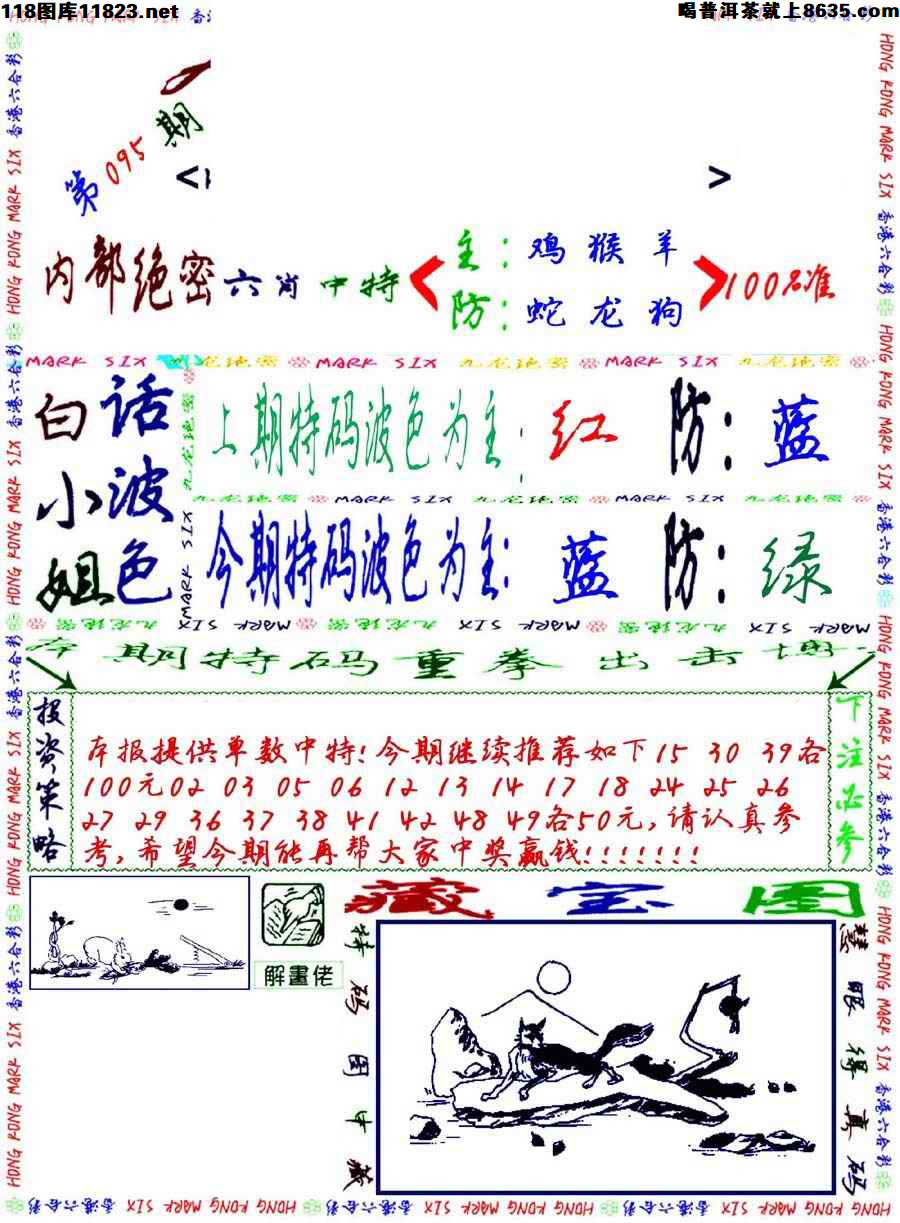 118图库11823.net
喝普洱茶就上8635.com
第095期
< >
内部绝密六肖中特
主:鸡猴羊
防:蛇龙狗
100%准
MARK SIX 九龙绝密 MARK SIX 九龙绝密 MARK SIX 九龙绝密
白话
小波
姐色
上期特码波色为主:红 防:蓝
九龙绝密 MARK SIX 九龙绝密 MARK SIX 九龙绝密 MARK SIX
今期特码波色为主:蓝 防:绿
九龙绝密 MARK SIX 九龙绝密 MARK SIX 九龙绝密 MARK SIX
期特码重拳出击
投资策略
本报提供单数中特!今期继续推荐如下15 30 39各
100元02 03 05 06 12 13 14 17 18 24 25 26
27 29 36 37 38 41 42 48 49各50元,请认真参
考,希望今期能再帮大家中奖赢钱!!!!!!!
下注必参
解畫佬
藏宝图
特码图中藏
慧眼得真码
HONG KONG MARK SIX 香港六合彩